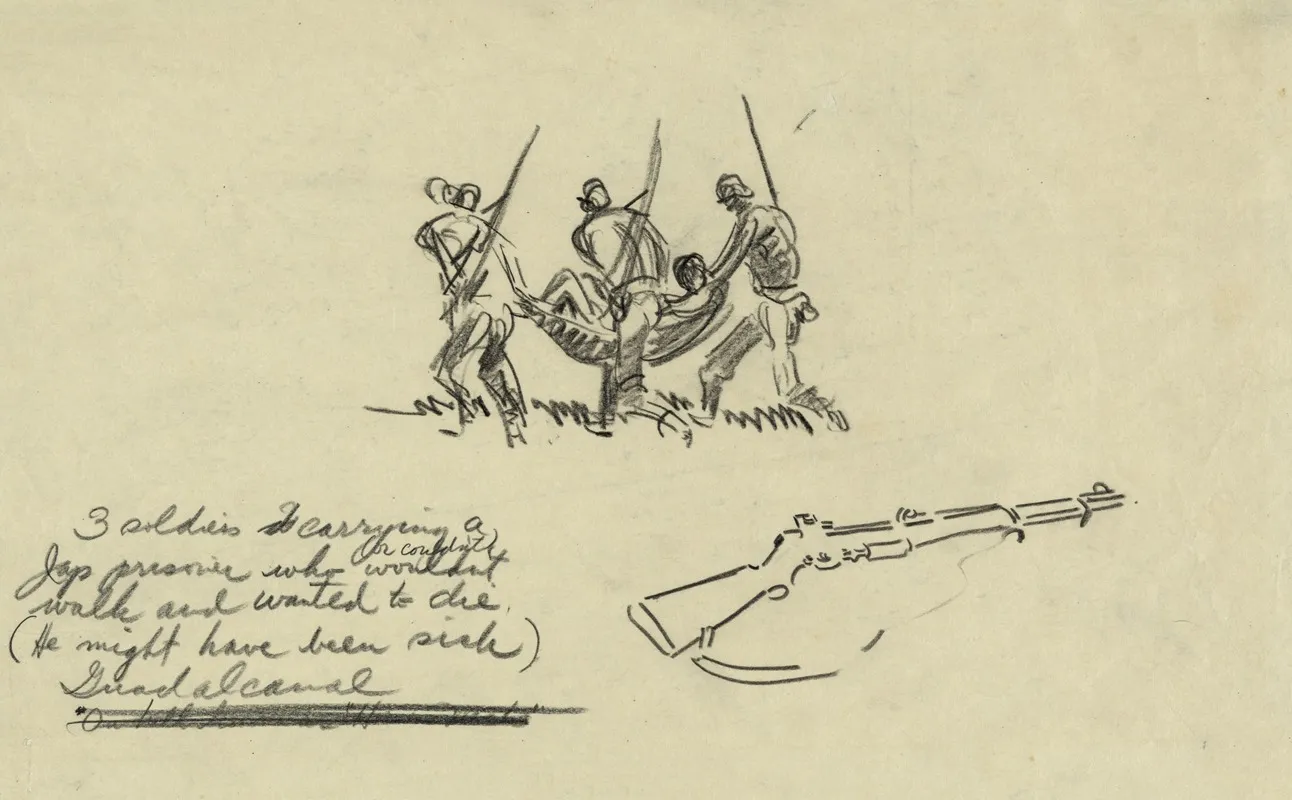 3 soldiers carrying a
(or couldn't)
Jap prisoner who wouldn't
walk and wanted to die.
(He might have been sick)
Guadalcanal